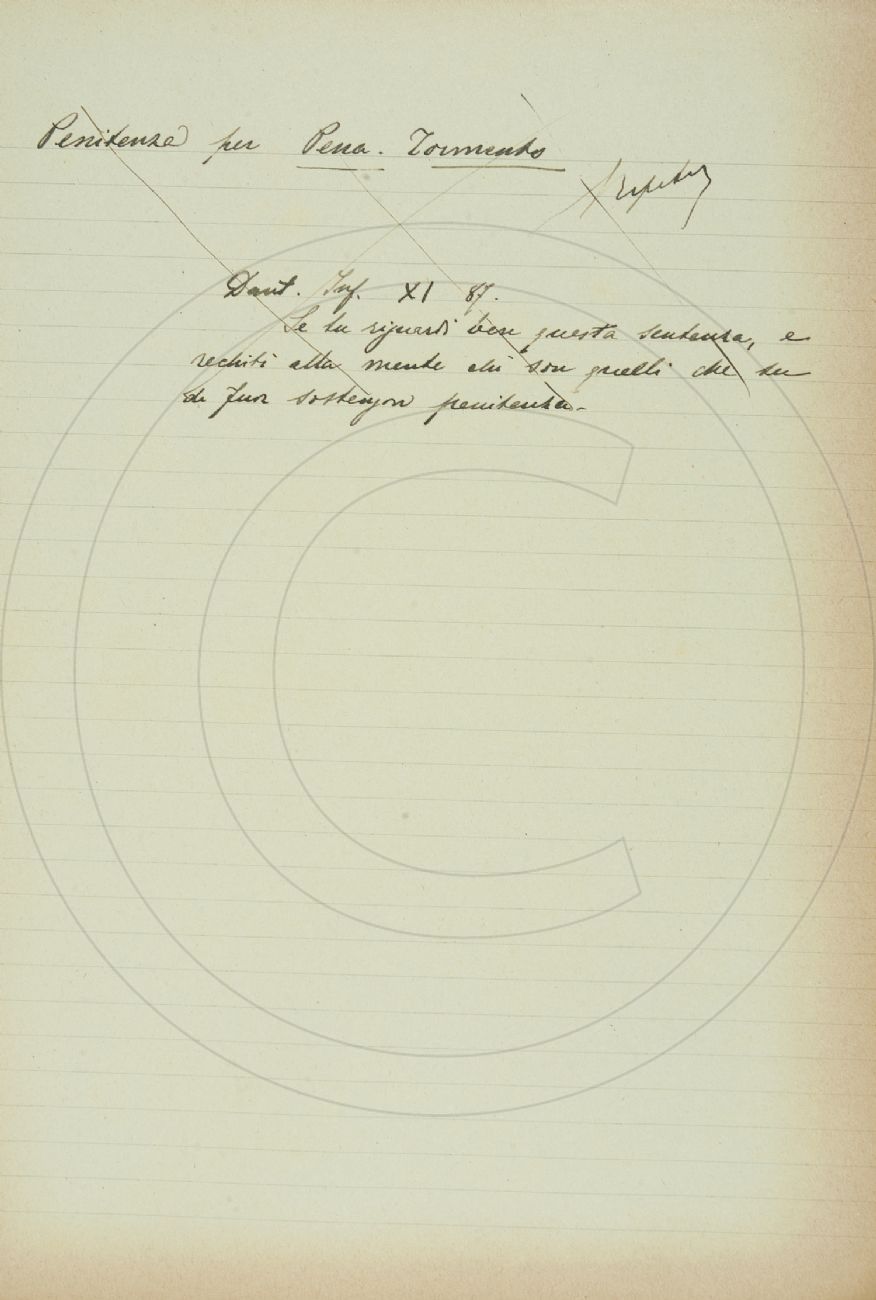 Penitenza per Pena. Tormento
Dant. Inf. XI 87.
Se tu riguardi ben questa sentenza, e
rechiti alla mente chi son quelli che su
di fuor sostengon penitenza.